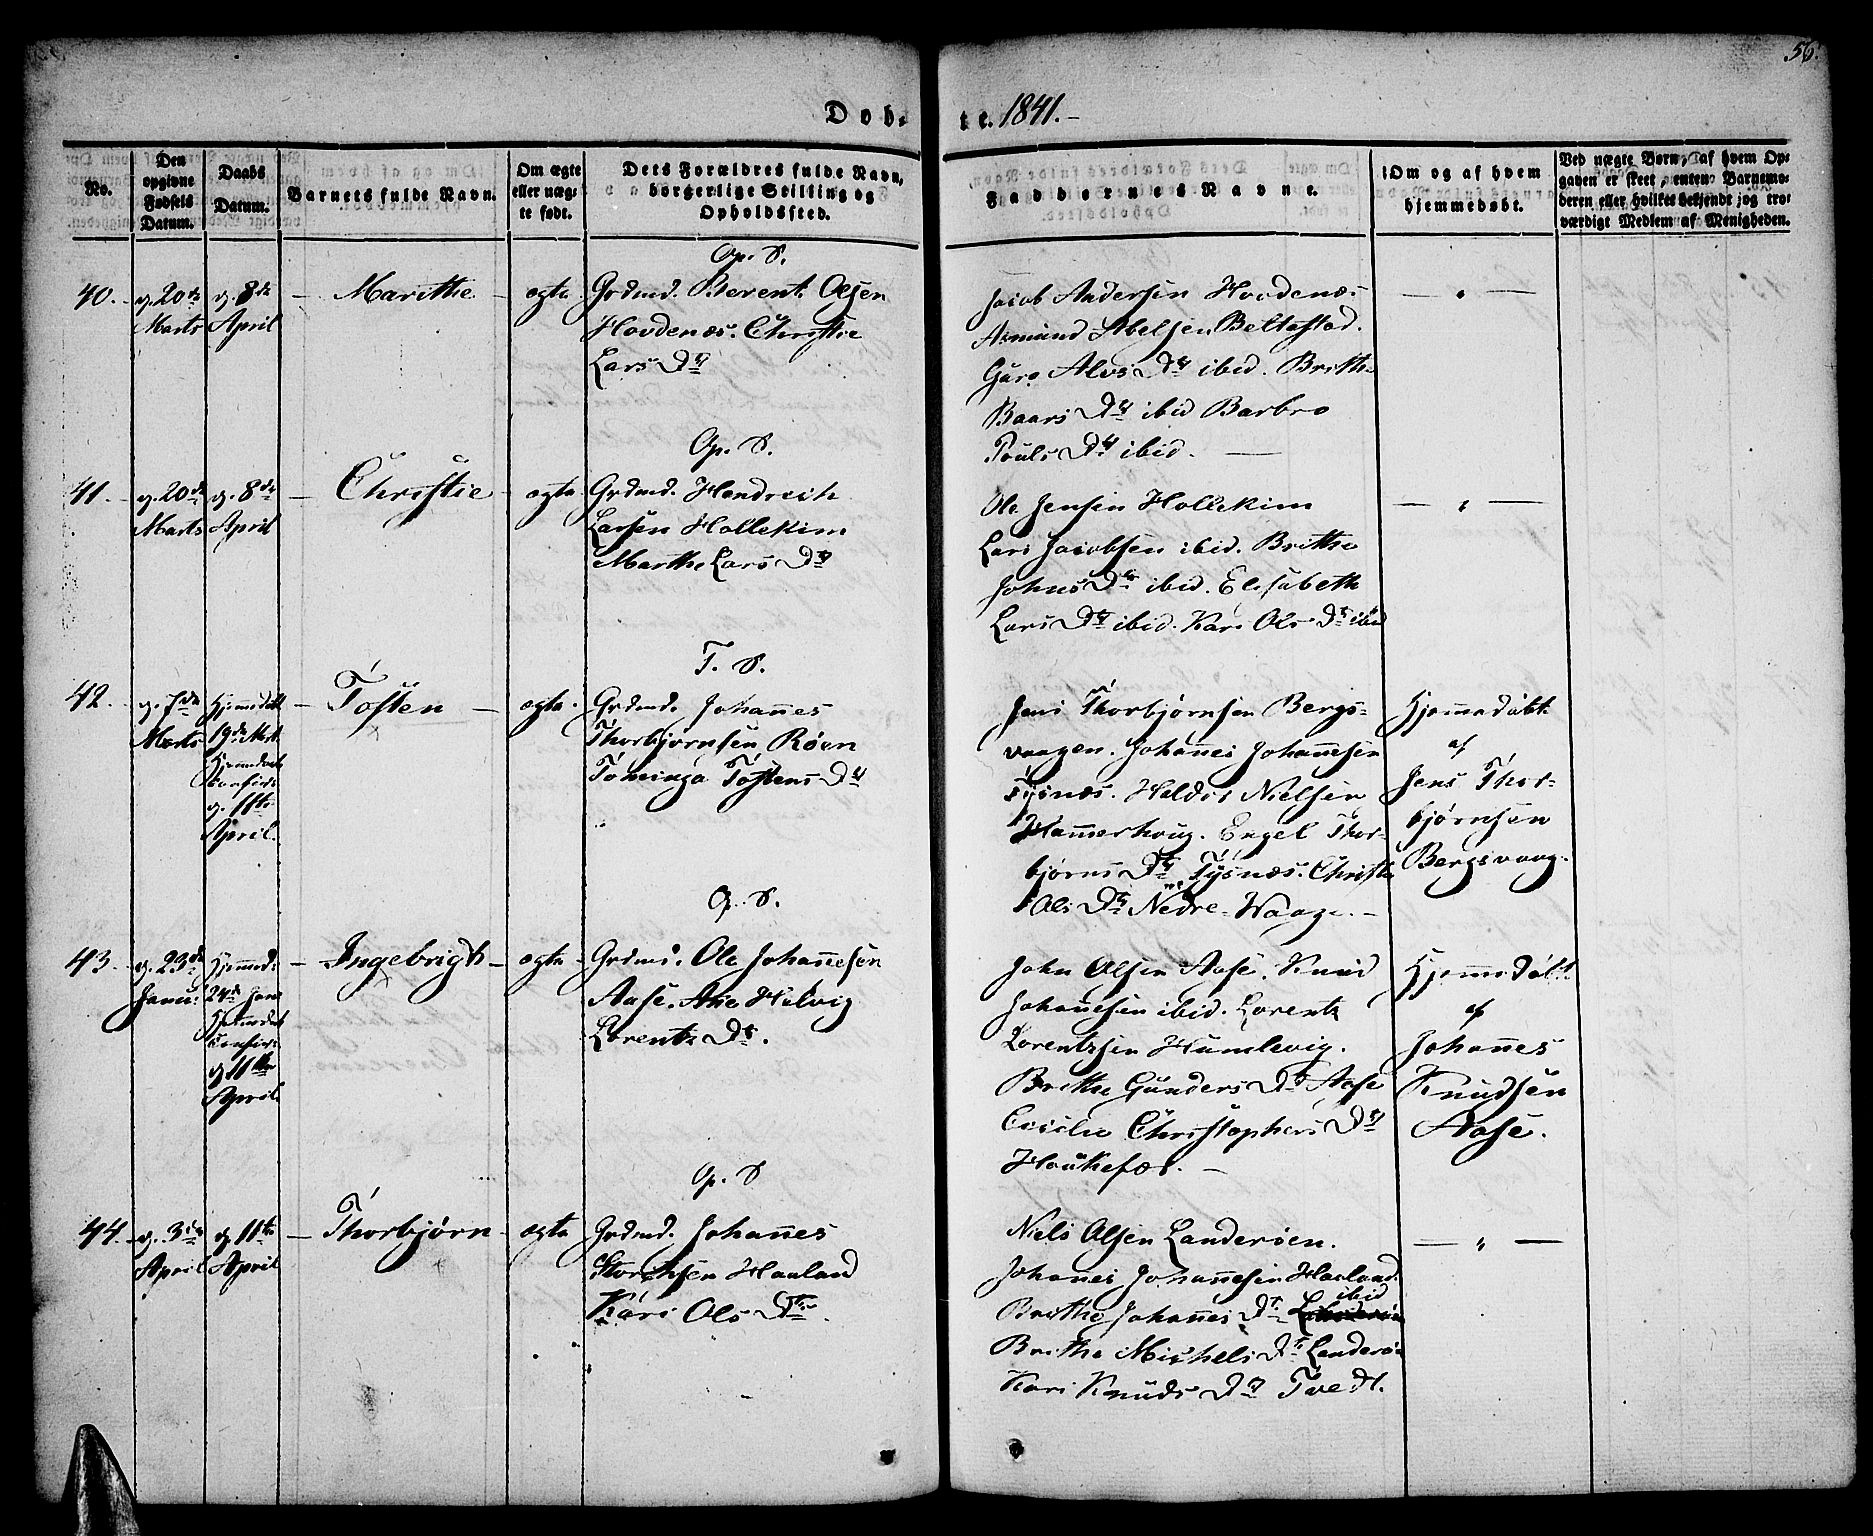 56.
Døb- te. 1841.-
No.
Den opgivne Fødsels Datum.
Daabs Datum.
Barnets fulde Navn.
Om ægte eller uægte født.
Dets Forældres fulde Navn, borgerlige Stilling og Opholdssted.
Faddernes Navne.
Om og af hvem hjemmedøbt.
Ved uægte Børn, af hvem Opgaven er skeet, enten Barnemoderen eller hvilket bekjendt og troværdigt Medlem af Menigheden.
Op. S.
40.
d. 20de
Marts
d. 8de
April
Marithe
ægte
Grdmd. Berent Olsen
Hovdenæs. Christie
Lars Dtr
Jacob Andersen Hovdenæs
Asmund Abelsen Beltestad.
Guro Alvs Dtr ibid. Brithe
Baars Dtr ibid Barbro
Pouls Dtr ibid.
— " —
Op. S.
41.
d. 20de
Marts
d. 8de
April
Christie
ægte
Grdmd. Hendrich
Larsen Hollekim
Marthe Lars Dtr
Ole Jensen Hollekim
Lars Jacobsen ibid. Brithe
Johns Dtr ibid. Elisabeth
Lars Dtr ibid. Kari Ols Dtr ibid
— " —
T. S.
42.
d. 7de
Marts
Hjemmedøbt
19de Mart.
Hjemmedaab
confir:
d. 11te
April.
Tosten
ægte
Grdmd. Johannes
Thorbjørnsen Røen
Tominga Tostens Dtr
Jens Thorbjørnsen Bergs-
vaagen. Johannes Johannesen
Tysnæs. Haldor Nielsen
Hammerhoug. Engel Thor-
bjørns Dtr Tysnæs. Christie
Ols Dtr Nedre-Waage. —
Hjemmedøbt
af
Jens Thor-
bjørnsen
Bergsvaag.
Op. S.
43.
d. 23de
Janu:
Hjemmed:
24de Jan
Hjemmedaab
confir:
d 11te
April.
Ingebrigt
ægte
Grdmd. Ole Johannesen
Aase. Ane Helvig
Lorentz Dtr.
John Olsen Aase. Knud
Johannesen ibid. Lorentz
Lorentzsen Humlevig.
Brithe Gunders Dtr Aase
Cicilie Christophers Dtr
Haukefær. —
Hjemmedøbt
af
Johannes
Knudsen
Aase.
Op. S
44.
d. 3die
April
d 11te
April
Thorbjørn
ægte
Grdmd. Johannes
Haaland
Kari Ols Dtr.
Niels Olsen Landerøen.
Johanes Johannesen Haaland.
Brithe Johannes Dtr ibid
Brithe Michels Dtr Landerøe
Kari Knuds Dtr Tvedt.
— " —